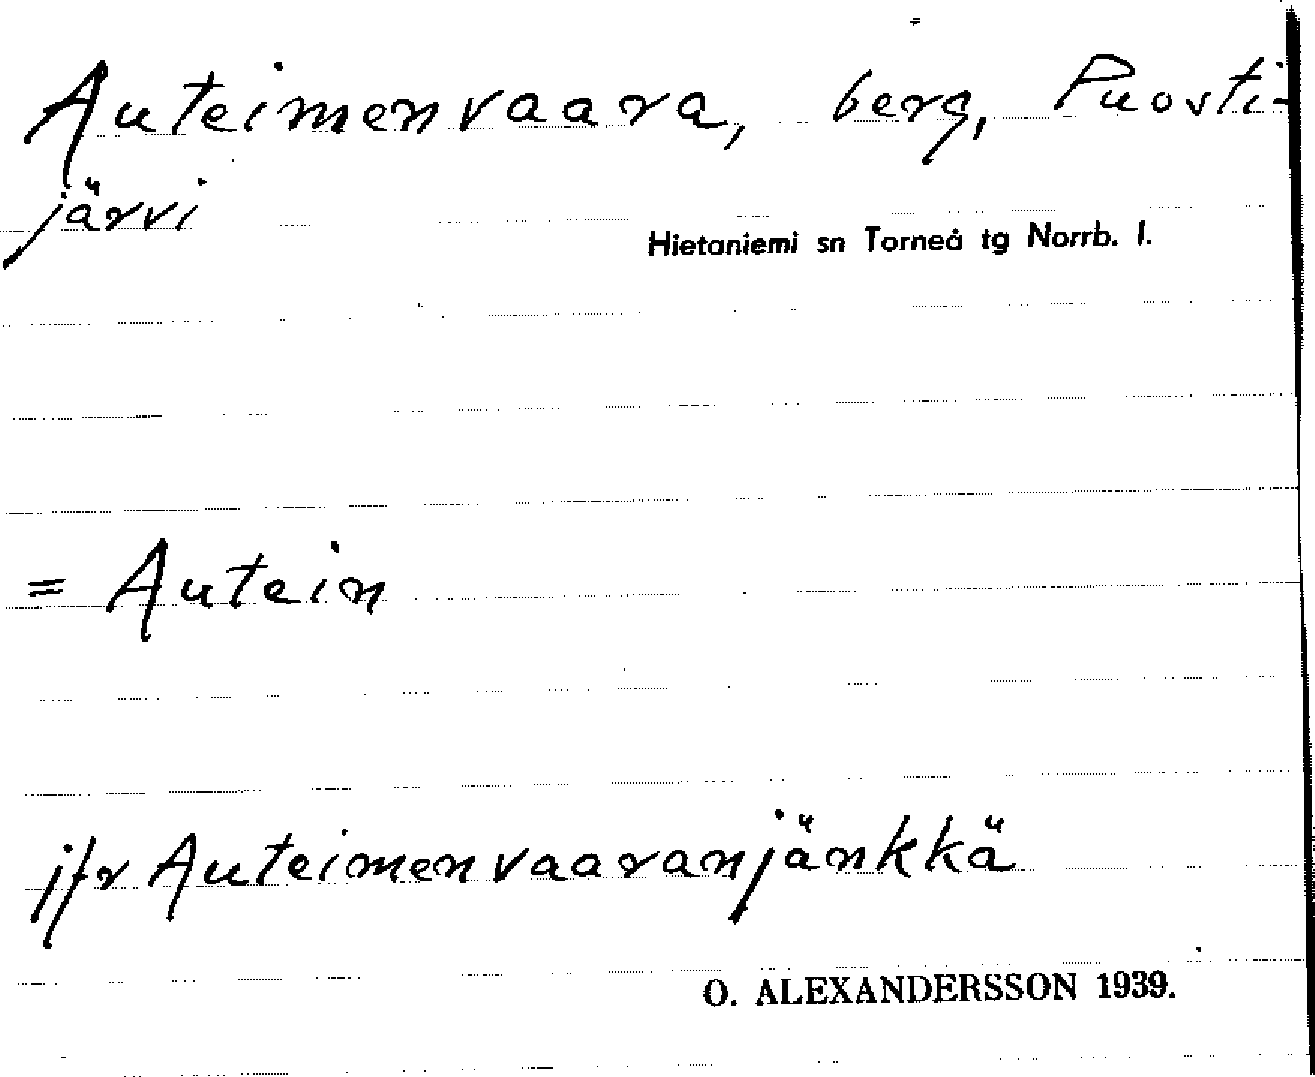 Auteimenvaara, berg, Puosti-
järvi
Hietaniemi sn Torneå tg Norrb. l.
= Autein
jfr Auteimenvaaranjänkkä
O. ALEXANDERSSON 1939.